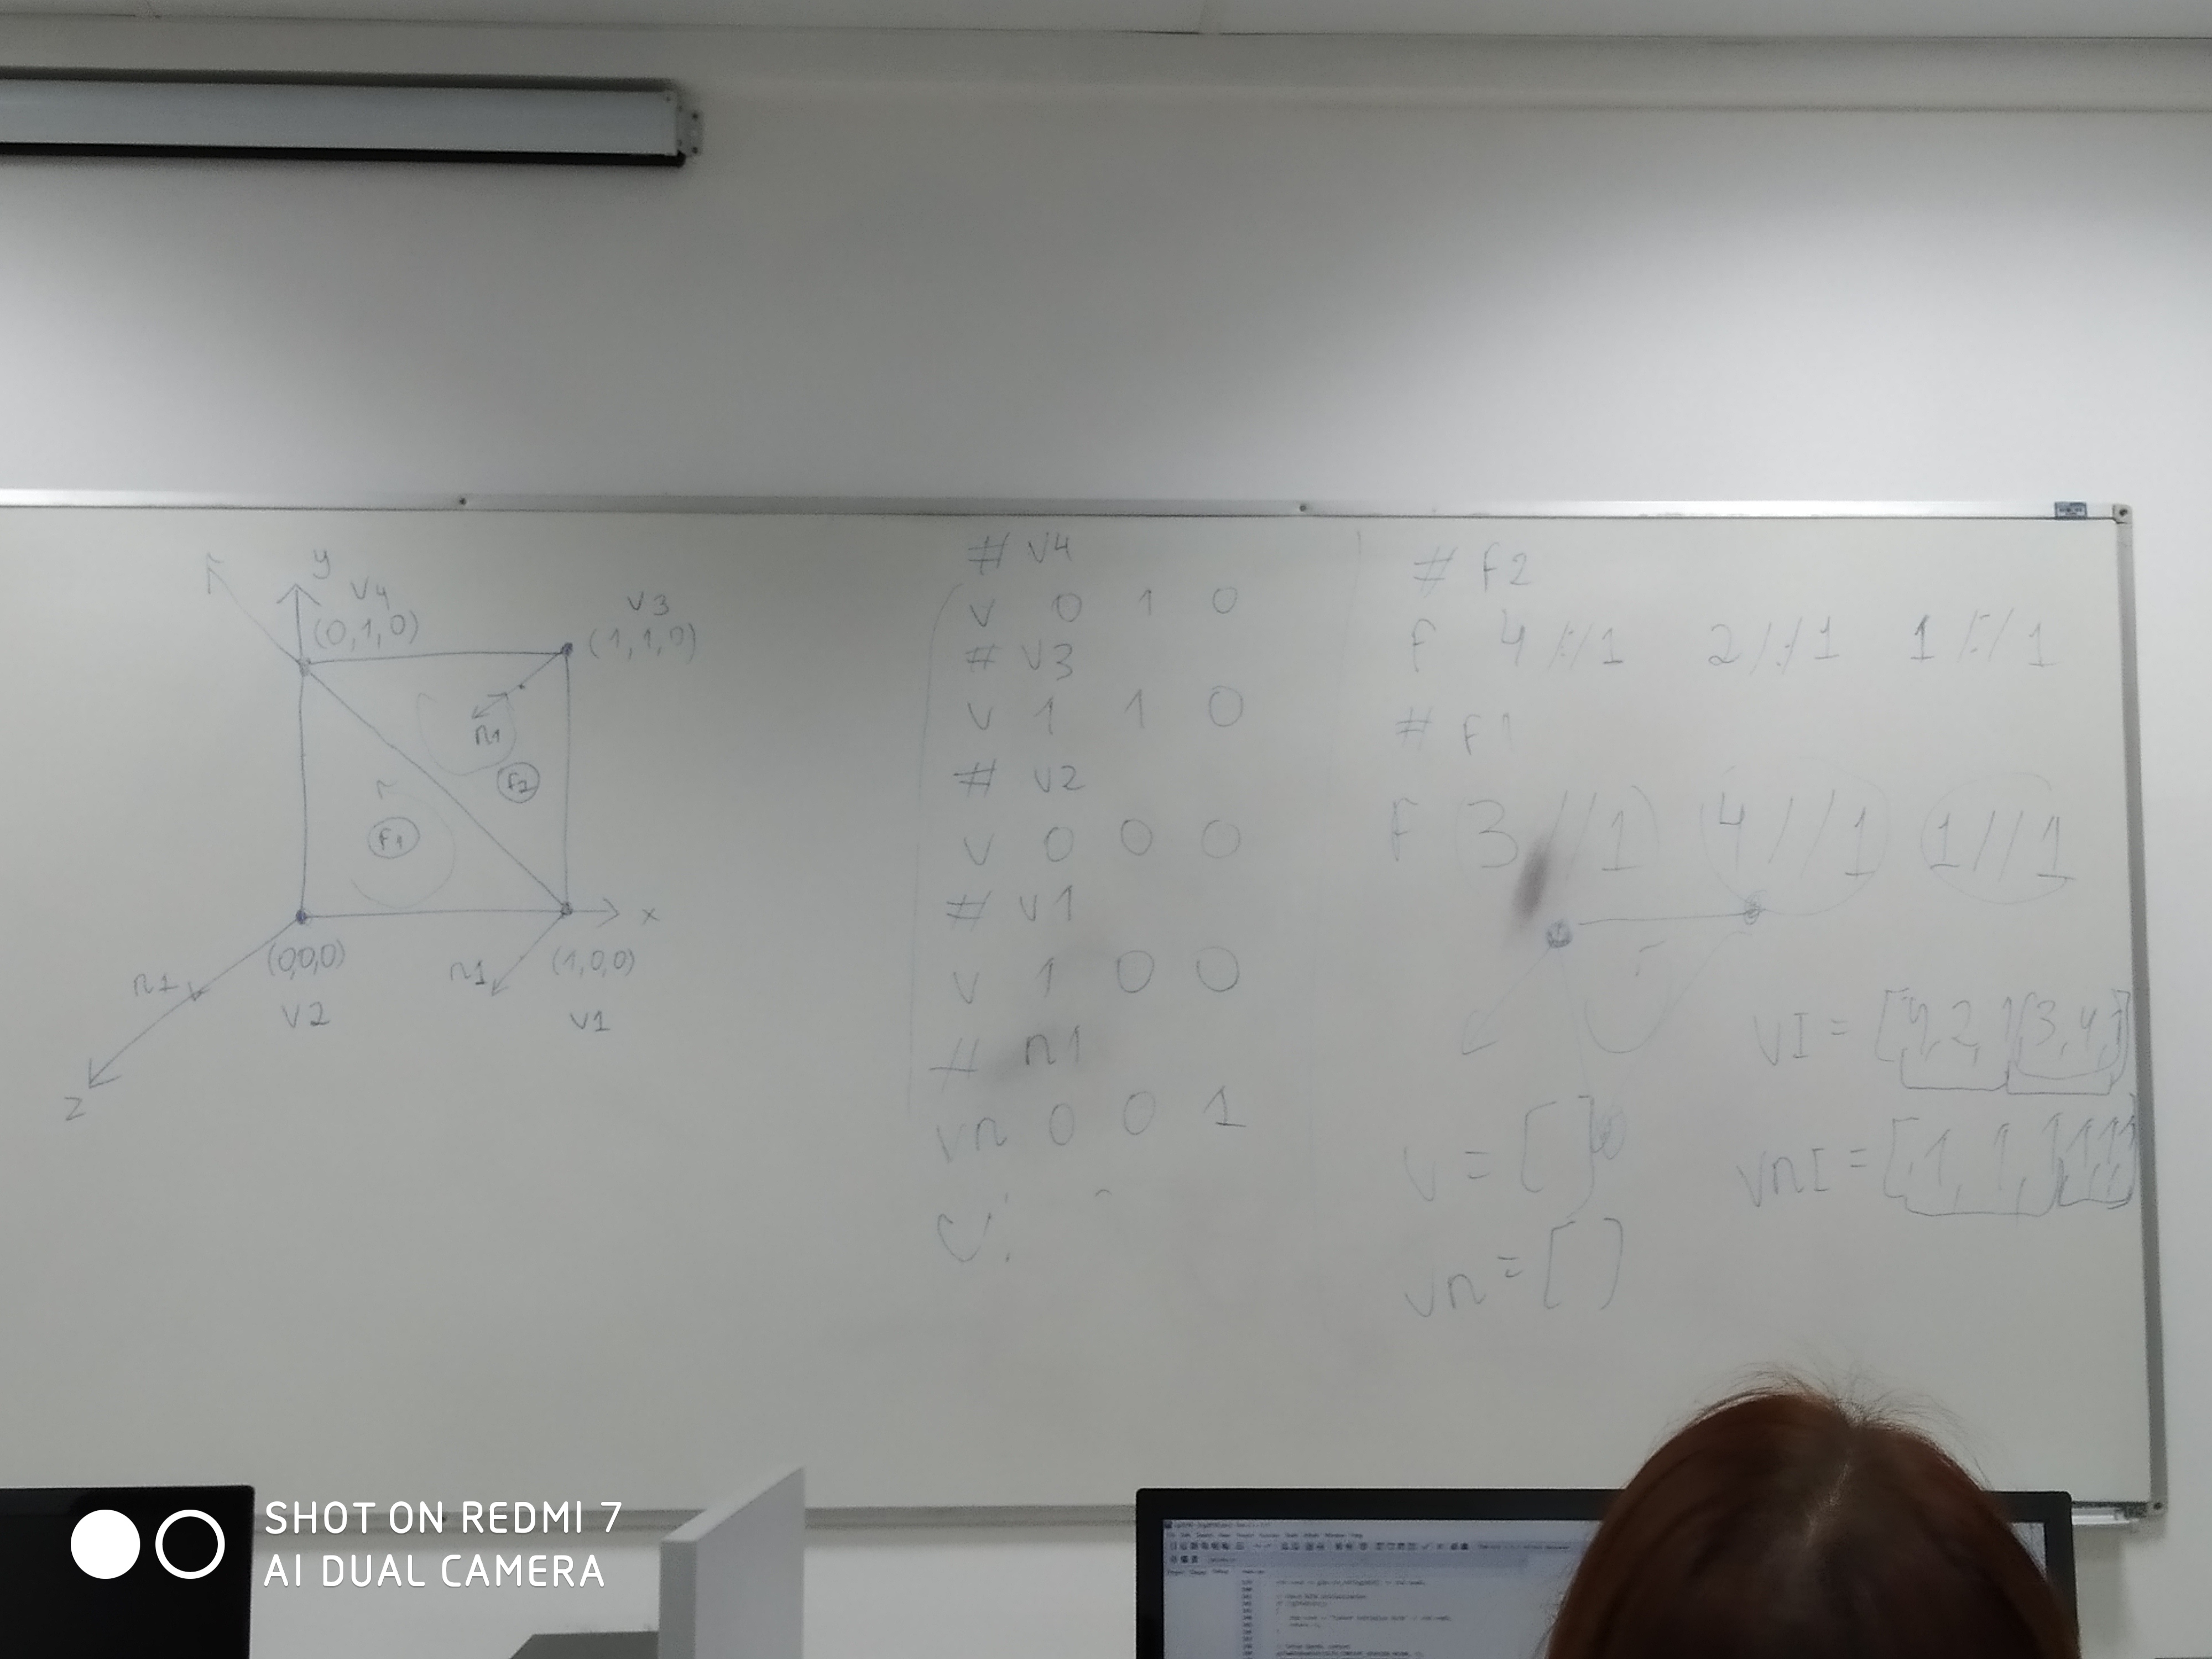 y
V4
(0,1,0)
V3
(1,1,0)
n1
F2
F1
x
n1
(0,0,0)
V2
n1
(1,0,0)
V1
z
# V4
V 0 1 0
# V3
V 1 1 0
# V2
V 0 0 0
# V1
V 1 0 0
# n1
vn 0 0 1
# F2
F 4//1 2//1 1//1
# F1
F 3//1 4//1 1//1
VI = [4,2,1,3,4,1]
V = [ ]
VnI = [1,1,1,1,1,1]
vn = [ ]
SHOT ON REDMI 7
AI DUAL CAMERA